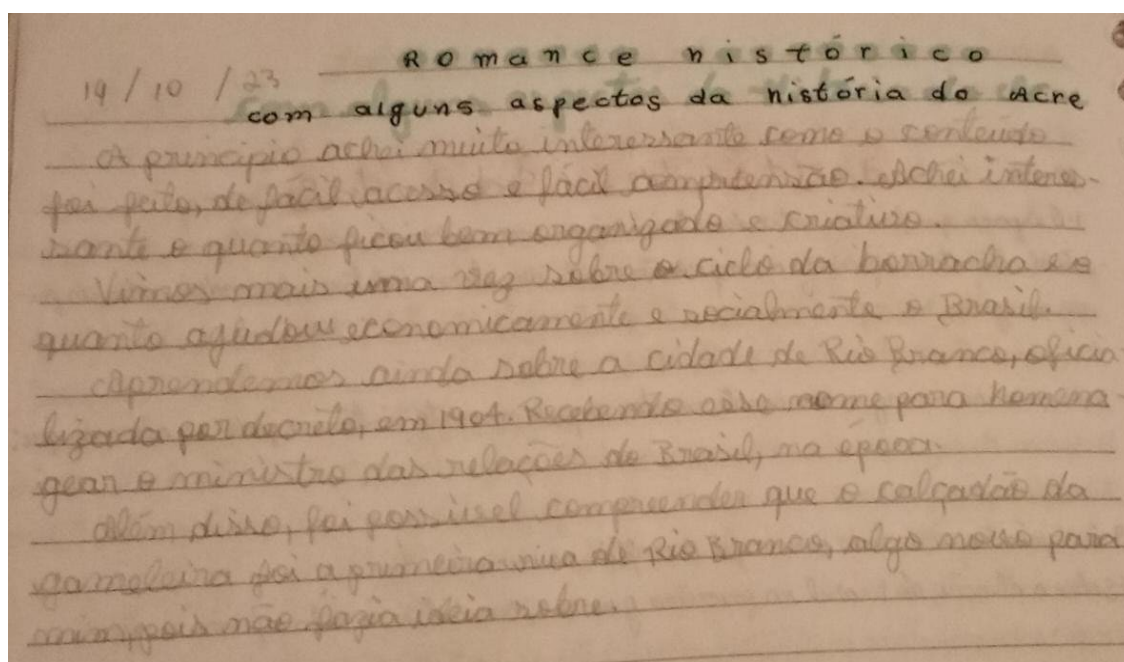 Romance histórico
14/10/23
com alguns aspectos da história do Acre
A princípio achei muito interessante como o conteúdo
foi feito, de fácil acesso e fácil compreensão. Achei interes-
sante o quanto ficou bem organizado e criativo.
Vimos mais uma vez sobre o ciclo da borracha e o
quanto ajudou economicamente e socialmente o Brasil.
Aprendemos ainda sobre a cidade de Rio Branco, oficia
lizada por decreto, em 1904. Recebendo esse nome para homena
gear o ministro das relações do Brasil, na época.
Além disso, foi possível compreender que o calçadão da
gameleira foi a primeira rua de Rio Branco, algo novo para
mim, pois não fazia ideia sobre.